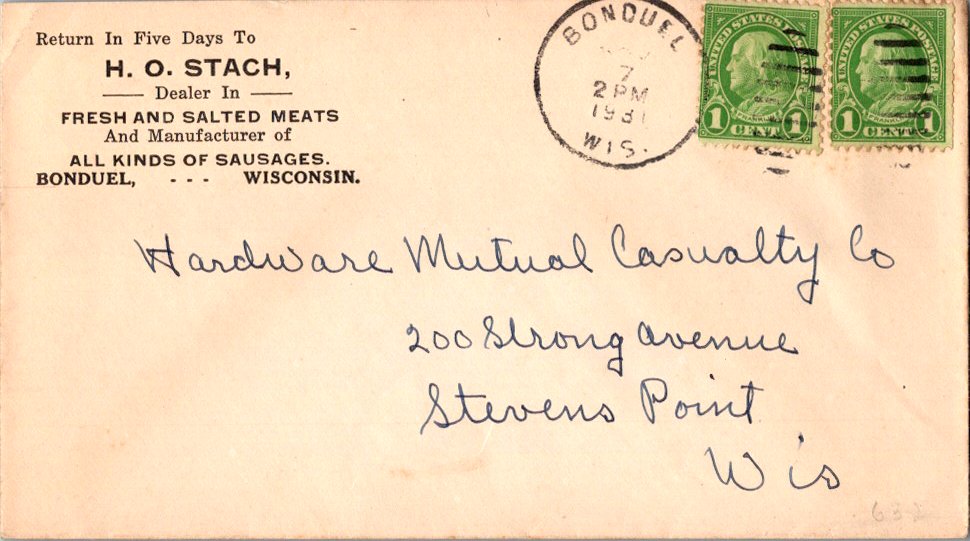 Return In Five Days To
H. O. STACH,
Dealer In
FRESH AND SALTED MEATS
And Manufacturer of
ALL KINDS OF SAUSAGES.
BONDUEL, - - - WISCONSIN.
BONDUEL
7
2 PM
1931
WIS.
UNITED STATES POSTAGE
FRANKLIN
1 CENT 1
UNITED STATES POSTAGE
FRANKLIN
1 CENT 1
Hardware Mutual Casualty Co
200 Strong Avenue
Stevens Point
Wis
632